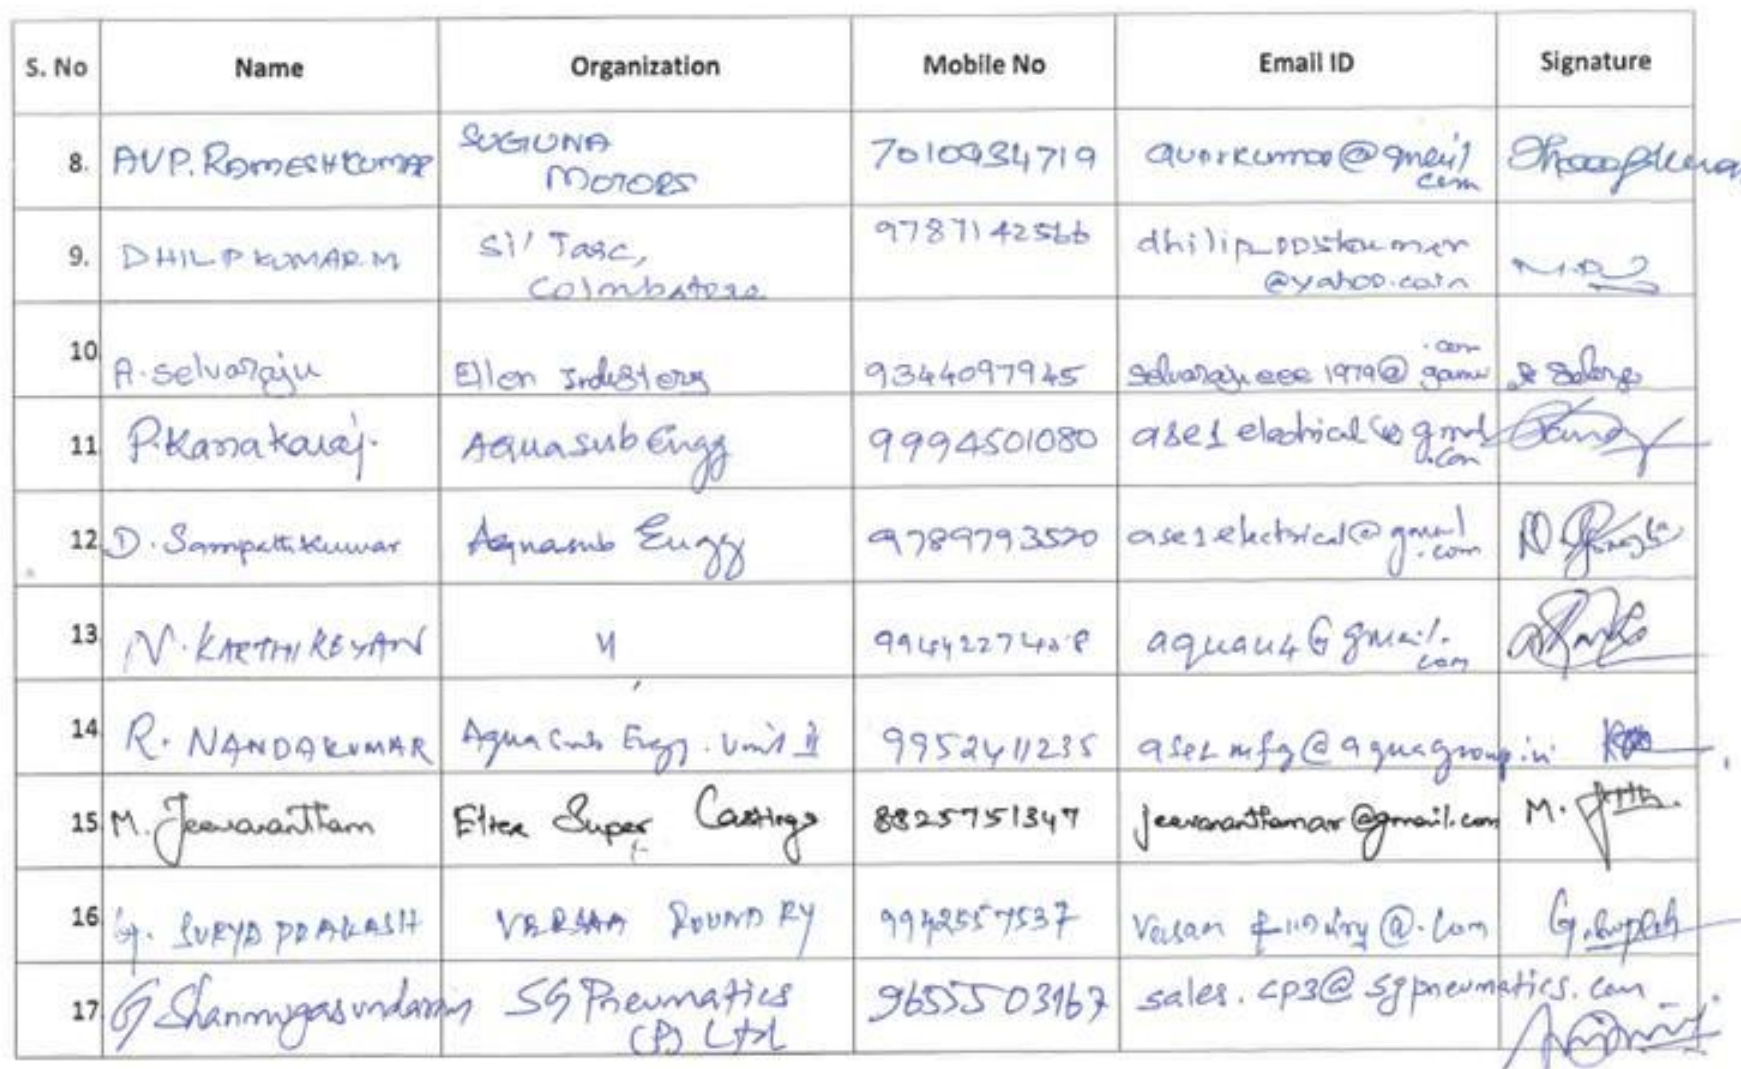 S. No Name Organization Mobile No Email ID Signature
8. AVP. RAMESHKUMAR SUGUNA MOTORS 7010934719 @gmail com
9. DHILIPKUMAR.M Si'Tarc, Coimbatore 9787142566 @yahoo.co.in
10. A. Selvaraju Ellen Industery 9344097945 selvarajueee1979@ .com
11. P. Kanakaraj. Aquasub Engg 9994501080 ase1electrical@gmail .com
12. D. Sampathkumar Aquasub Engg 9789793520 ase1electrical@gmail .com
13. N. KARTHIKEYAN 〃 aquau4@gmail. com
14. R. NANDAKUMAR Aquasub Engg. Unit II 9952411235 mfg@aquagroup.in
15. M. Jeevanantham Super Castings 8825751347 jeevananthamar@gmail.com M.
16. G. SURYA PRAKASH 9942557537 @.com G.
17. G Shanmugasundaram SG Pneumatics (P) Ltd 9655503167 sales.cp3@sgpneumatics.com